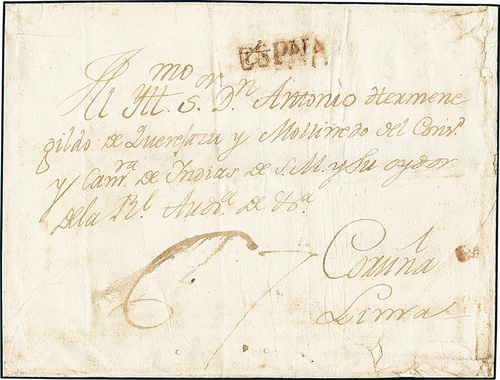 ESPNA
Al Ill.mo S.or D.n Antonio Hermene
gildo de Querejazu y Mollinedo del Cons.o
y Cam.ra de Indias de S.M. y Su oydor
de la R.l Aud.a de
Coruña
Lima